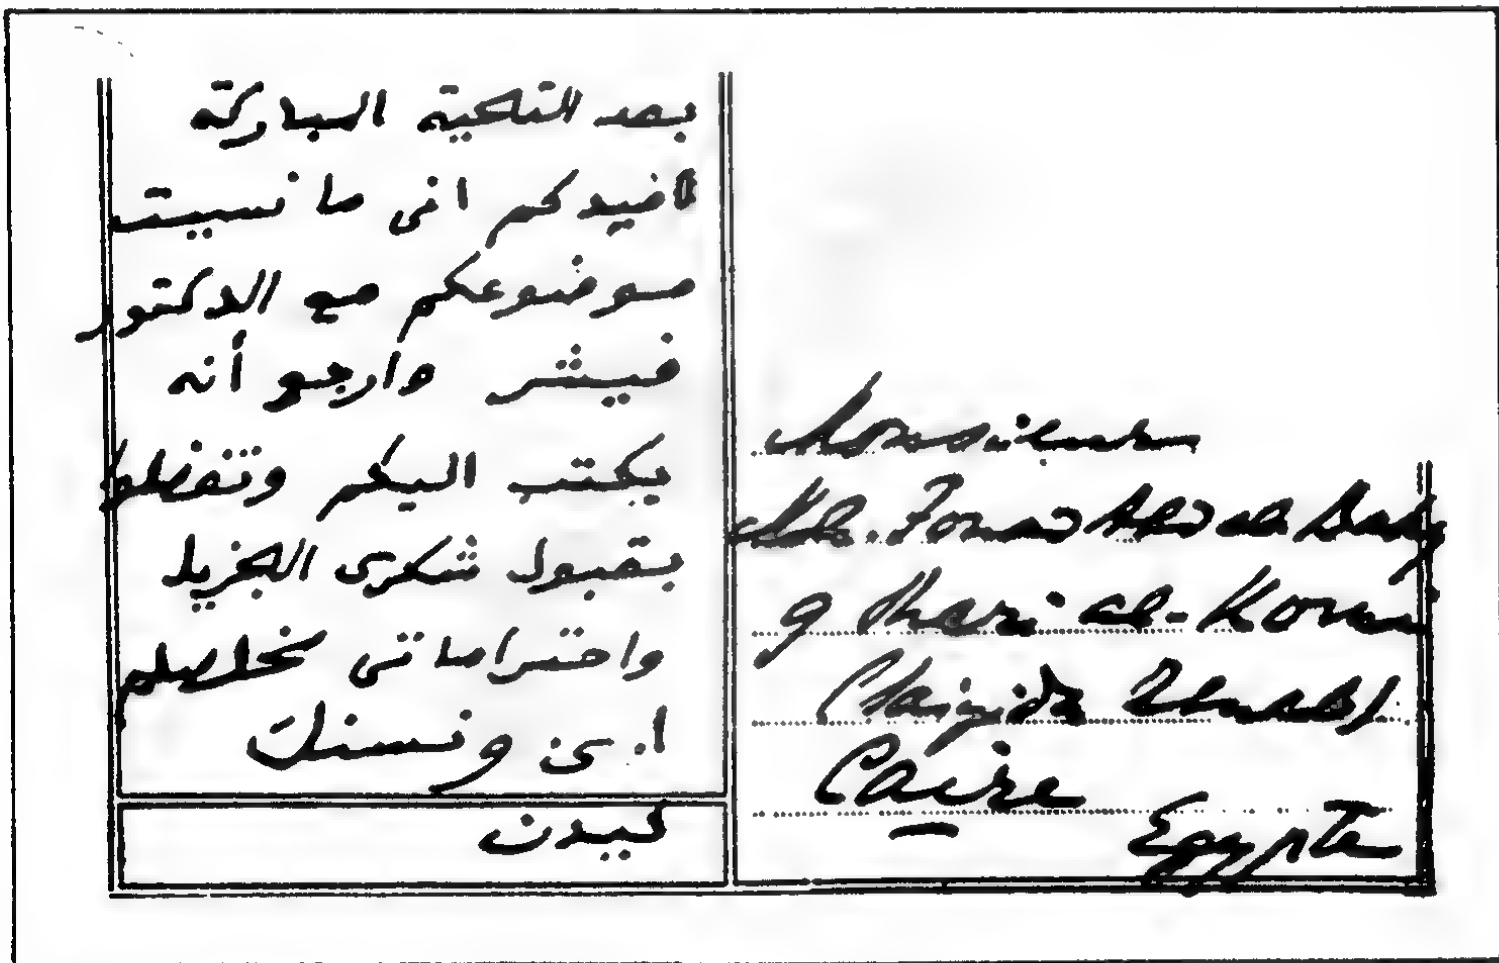 بعد التحية المباركة
لافيدكم انى ما نسيت
موضوعكم مع الدكتور
فيشر وارجو أنه
يكتب اليكم وتفضلوا
بقبول شكرى الجزيل
واحتراماتى مخلصكم
ا. ى. ونسنك
ليدن
Monsieur
M. Fouad Abd al Baky
9 Shari al-Koumi
Caire
Egypte